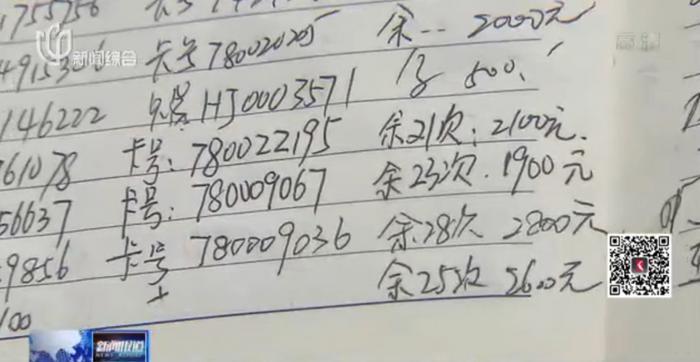 1755756 卡号
新闻综合
4915306 卡号78002025 余 2000元
高清
146222 卡号HJ0003571 500.
61078 卡号:780022195 余21次:2100元.
56637 卡号:780009067 余23次.1900元
9856 卡号 780009036 余28次 2800元
余25次 2600元
100
新闻报道
NEWS REPORT